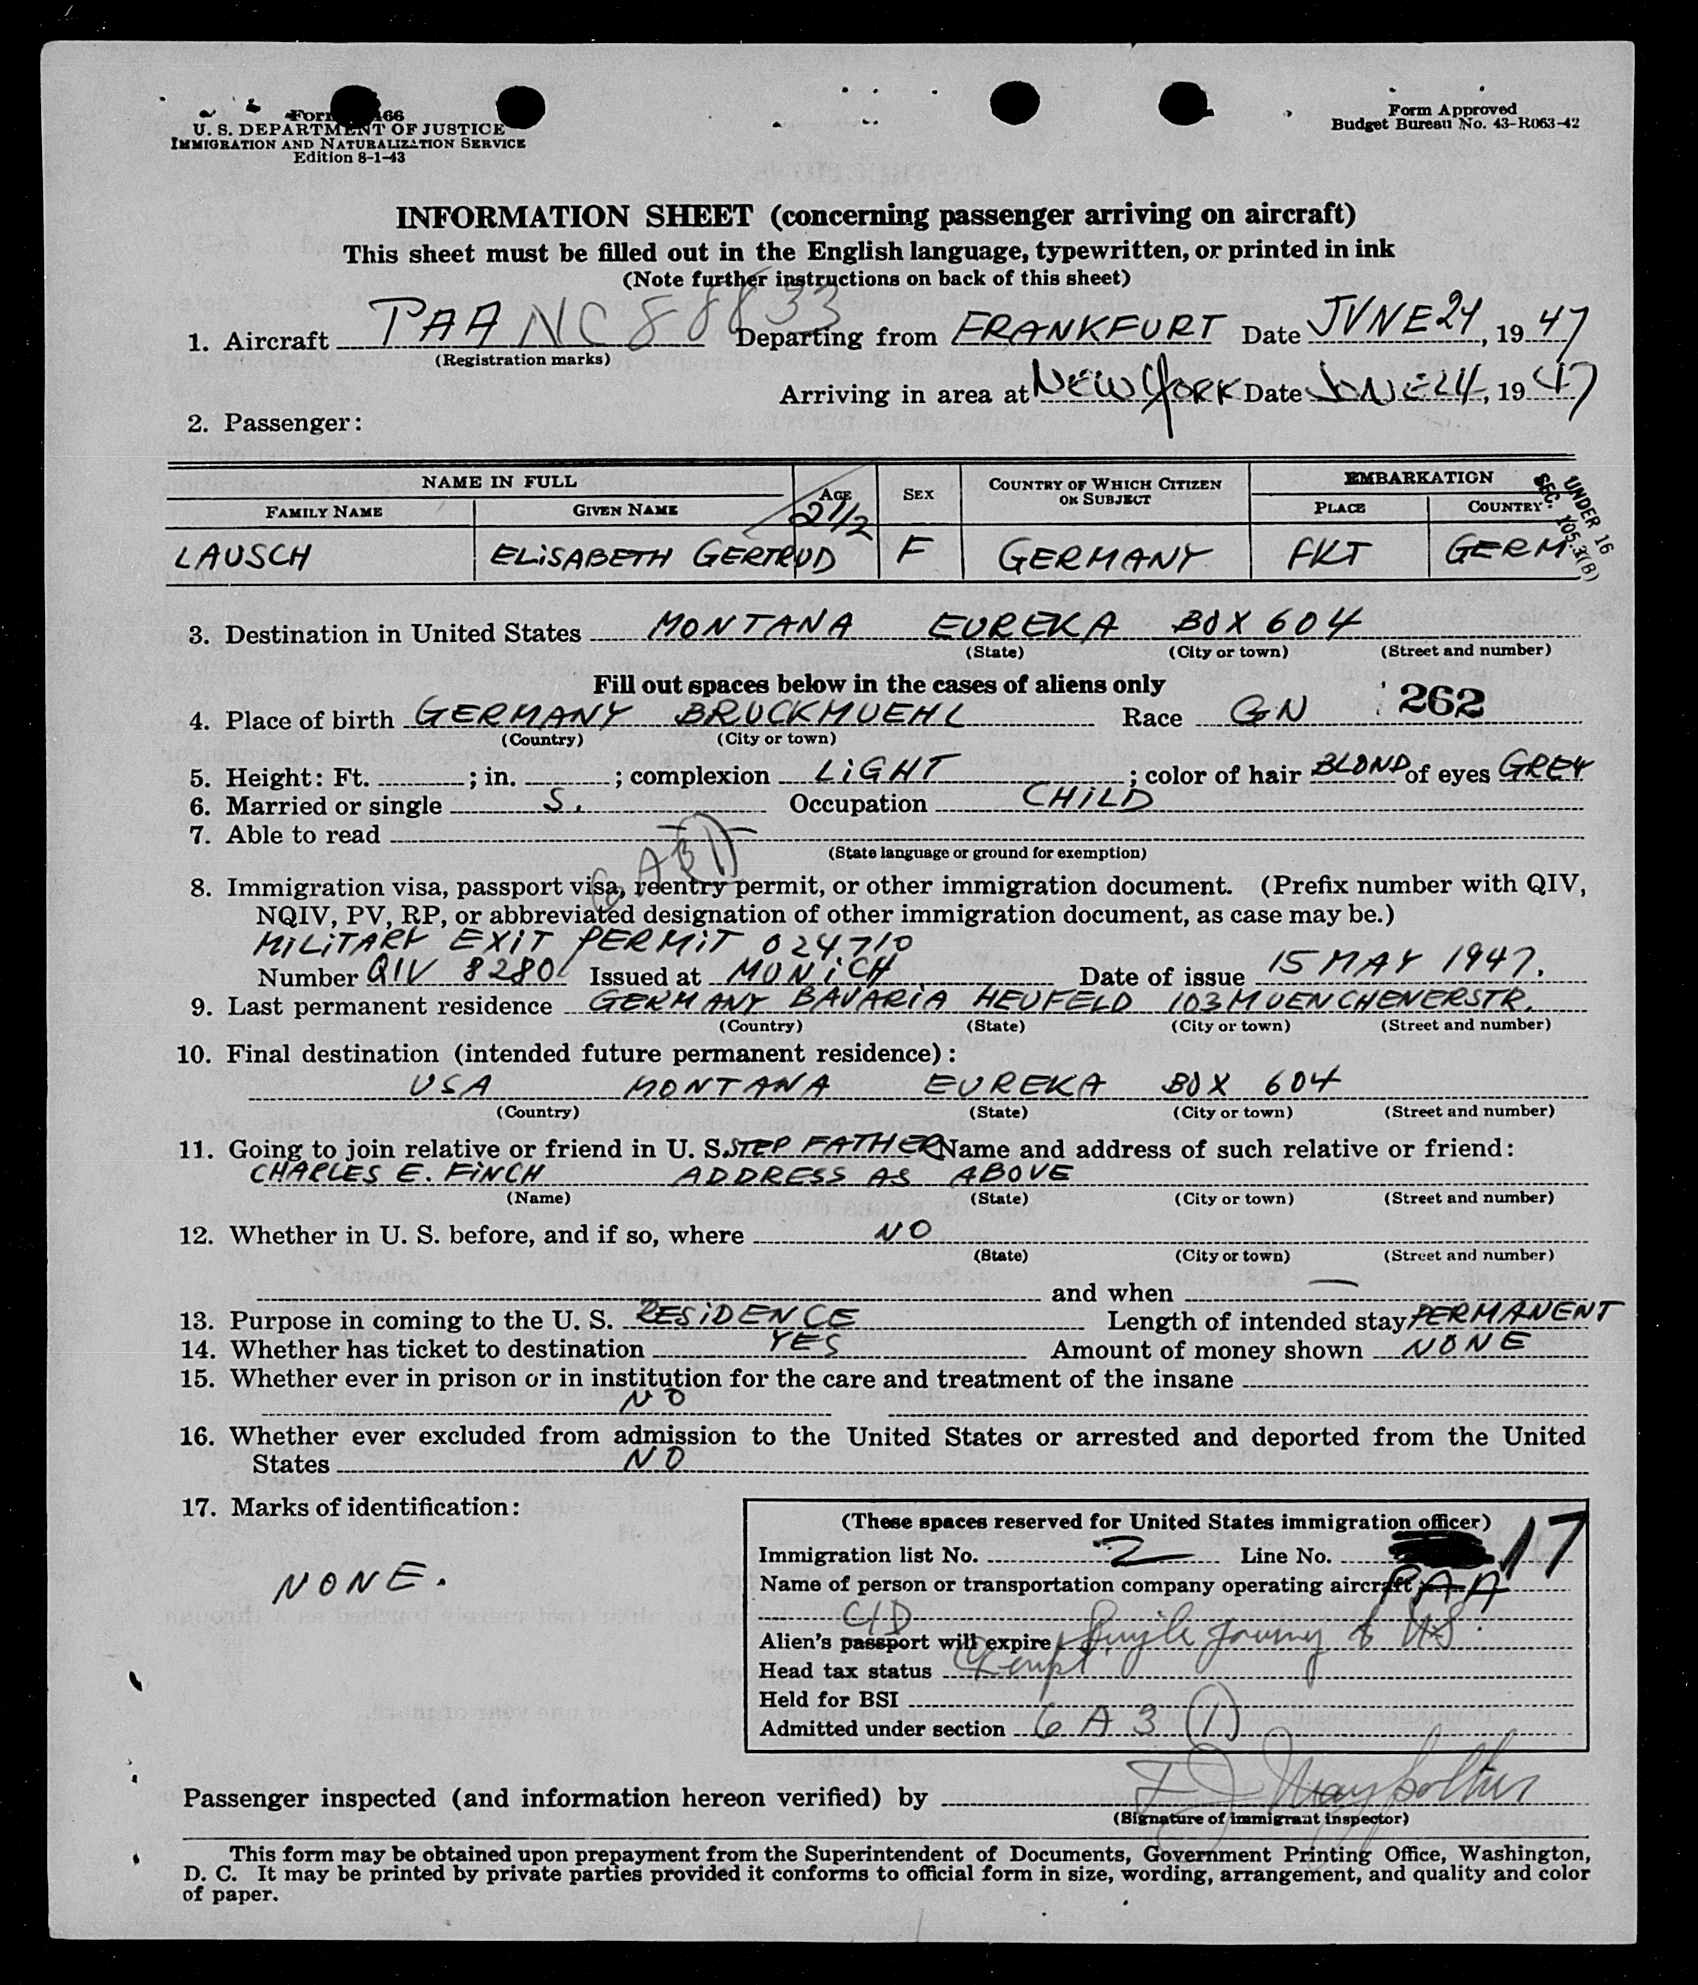 Form 66
U. S. DEPARTMENT OF JUSTICE
IMMIGRATION AND NATURALIZATION SERVICE
Edition 8-1-43
Form Approved
Budget Bureau No. 43-R063-42
INFORMATION SHEET (concerning passenger arriving on aircraft)
This sheet must be filled out in the English language, typewritten, or printed in ink
(Note further instructions on back of this sheet)
1. Aircraft PAA NC 88833 Departing from FRANKFURT Date JUNE 24, 1947
(Registration marks)
Arriving in area at NEW YORK Date JUNE 24, 1947
2. Passenger:
NAME IN FULL AGE SEX COUNTRY OF WHICH CITIZEN OR SUBJECT EMBARKATION
FAMILY NAME GIVEN NAME 2 1/2 PLACE COUNTRY
UNDER 16
SEC. 105.3(B)
LAUSCH ELISABETH GERTRUD F GERMANY FKT GERM.
3. Destination in United States MONTANA EUREKA BOX 604
(State) (City or town) (Street and number)
Fill out spaces below in the cases of aliens only
4. Place of birth GERMANY BRUCKMUEHL Race GN 262
(Country) (City or town)
5. Height: Ft. ; in. ; complexion LIGHT ; color of hair BLOND of eyes GREY
6. Married or single S. Occupation CHILD
7. Able to read
(State language or ground for exemption)
8. Immigration visa, passport visa, reentry permit, or other immigration document. (Prefix number with QIV,
NQIV, PV, RP, or abbreviated designation of other immigration document, as case may be.)
MILITARY EXIT PERMIT 024710
Number QIV 8280 Issued at MUNICH Date of issue 15 MAY 1947.
9. Last permanent residence GERMANY BAVARIA HEUFELD 103 MUENCHENERSTR.
(Country) (State) (City or town) (Street and number)
10. Final destination (intended future permanent residence):
USA MONTANA EUREKA BOX 604
(Country) (State) (City or town) (Street and number)
11. Going to join relative or friend in U. S. STEP FATHER Name and address of such relative or friend:
CHARLES E. FINCH ADDRESS AS ABOVE
(Name) (State) (City or town) (Street and number)
12. Whether in U. S. before, and if so, where NO
(State) (City or town) (Street and number)
and when —
13. Purpose in coming to the U. S. RESIDENCE Length of intended stay PERMANENT
14. Whether has ticket to destination YES Amount of money shown NONE
15. Whether ever in prison or in institution for the care and treatment of the insane
NO
16. Whether ever excluded from admission to the United States or arrested and deported from the United
States NO
17. Marks of identification:
NONE.
(These spaces reserved for United States immigration officer)
Immigration list No. 2 Line No. 17
Name of person or transportation company operating aircraft PAA
C/D
Alien's passport will expire Single journey to US.
Head tax status Exempt
Held for BSI
Admitted under section 6 A 3 (1)
Passenger inspected (and information hereon verified) by
(Signature of immigrant inspector)
This form may be obtained upon prepayment from the Superintendent of Documents, Government Printing Office, Washington,
D. C. It may be printed by private parties provided it conforms to official form in size, wording, arrangement, and quality and color
of paper.